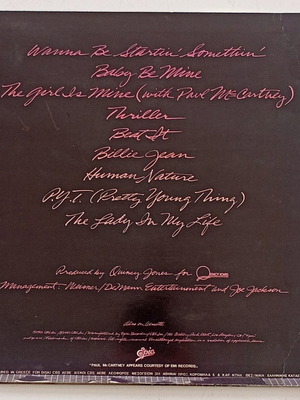 Wanna Be Startin' Somethin'
Baby Be Mine
The Girl Is Mine (with Paul McCartney)
Thriller
Beat It
Billie Jean
Human Nature
P.Y.T. (Pretty Young Thing)
The Lady In My Life
Produced by Quincy Jones for
Management: Weisner/DeMann Entertainment and Joe Jackson
Also on Cassette
Epic
"PAUL McCARTNEY APPEARS COURTESY OF EMI RECORDS.